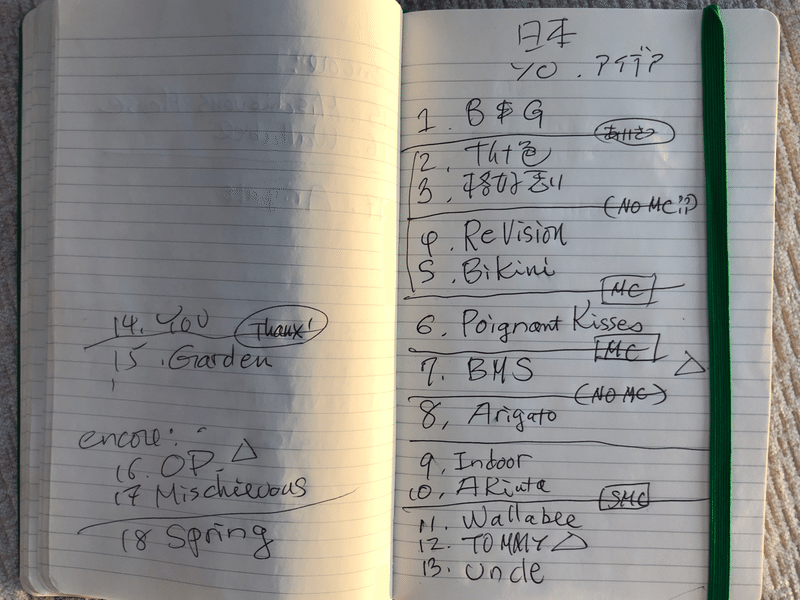 日本
YO . アイデア
1. B & G
あいさつ
2.
3.
(NO MC!?)
4. ReVision
5. Bikini
MC
6. Poignant Kisses
MC
7. BMS △
(NO MC)
8, Arigato
9, Indoor
10, Akiuta
SMC
11. Wallabee
12. TOMMY △
13. Uncle
14. YOU
Thanx!
15 . Garden
encore:
16. OP. △
17 Mischievous
18 Spring